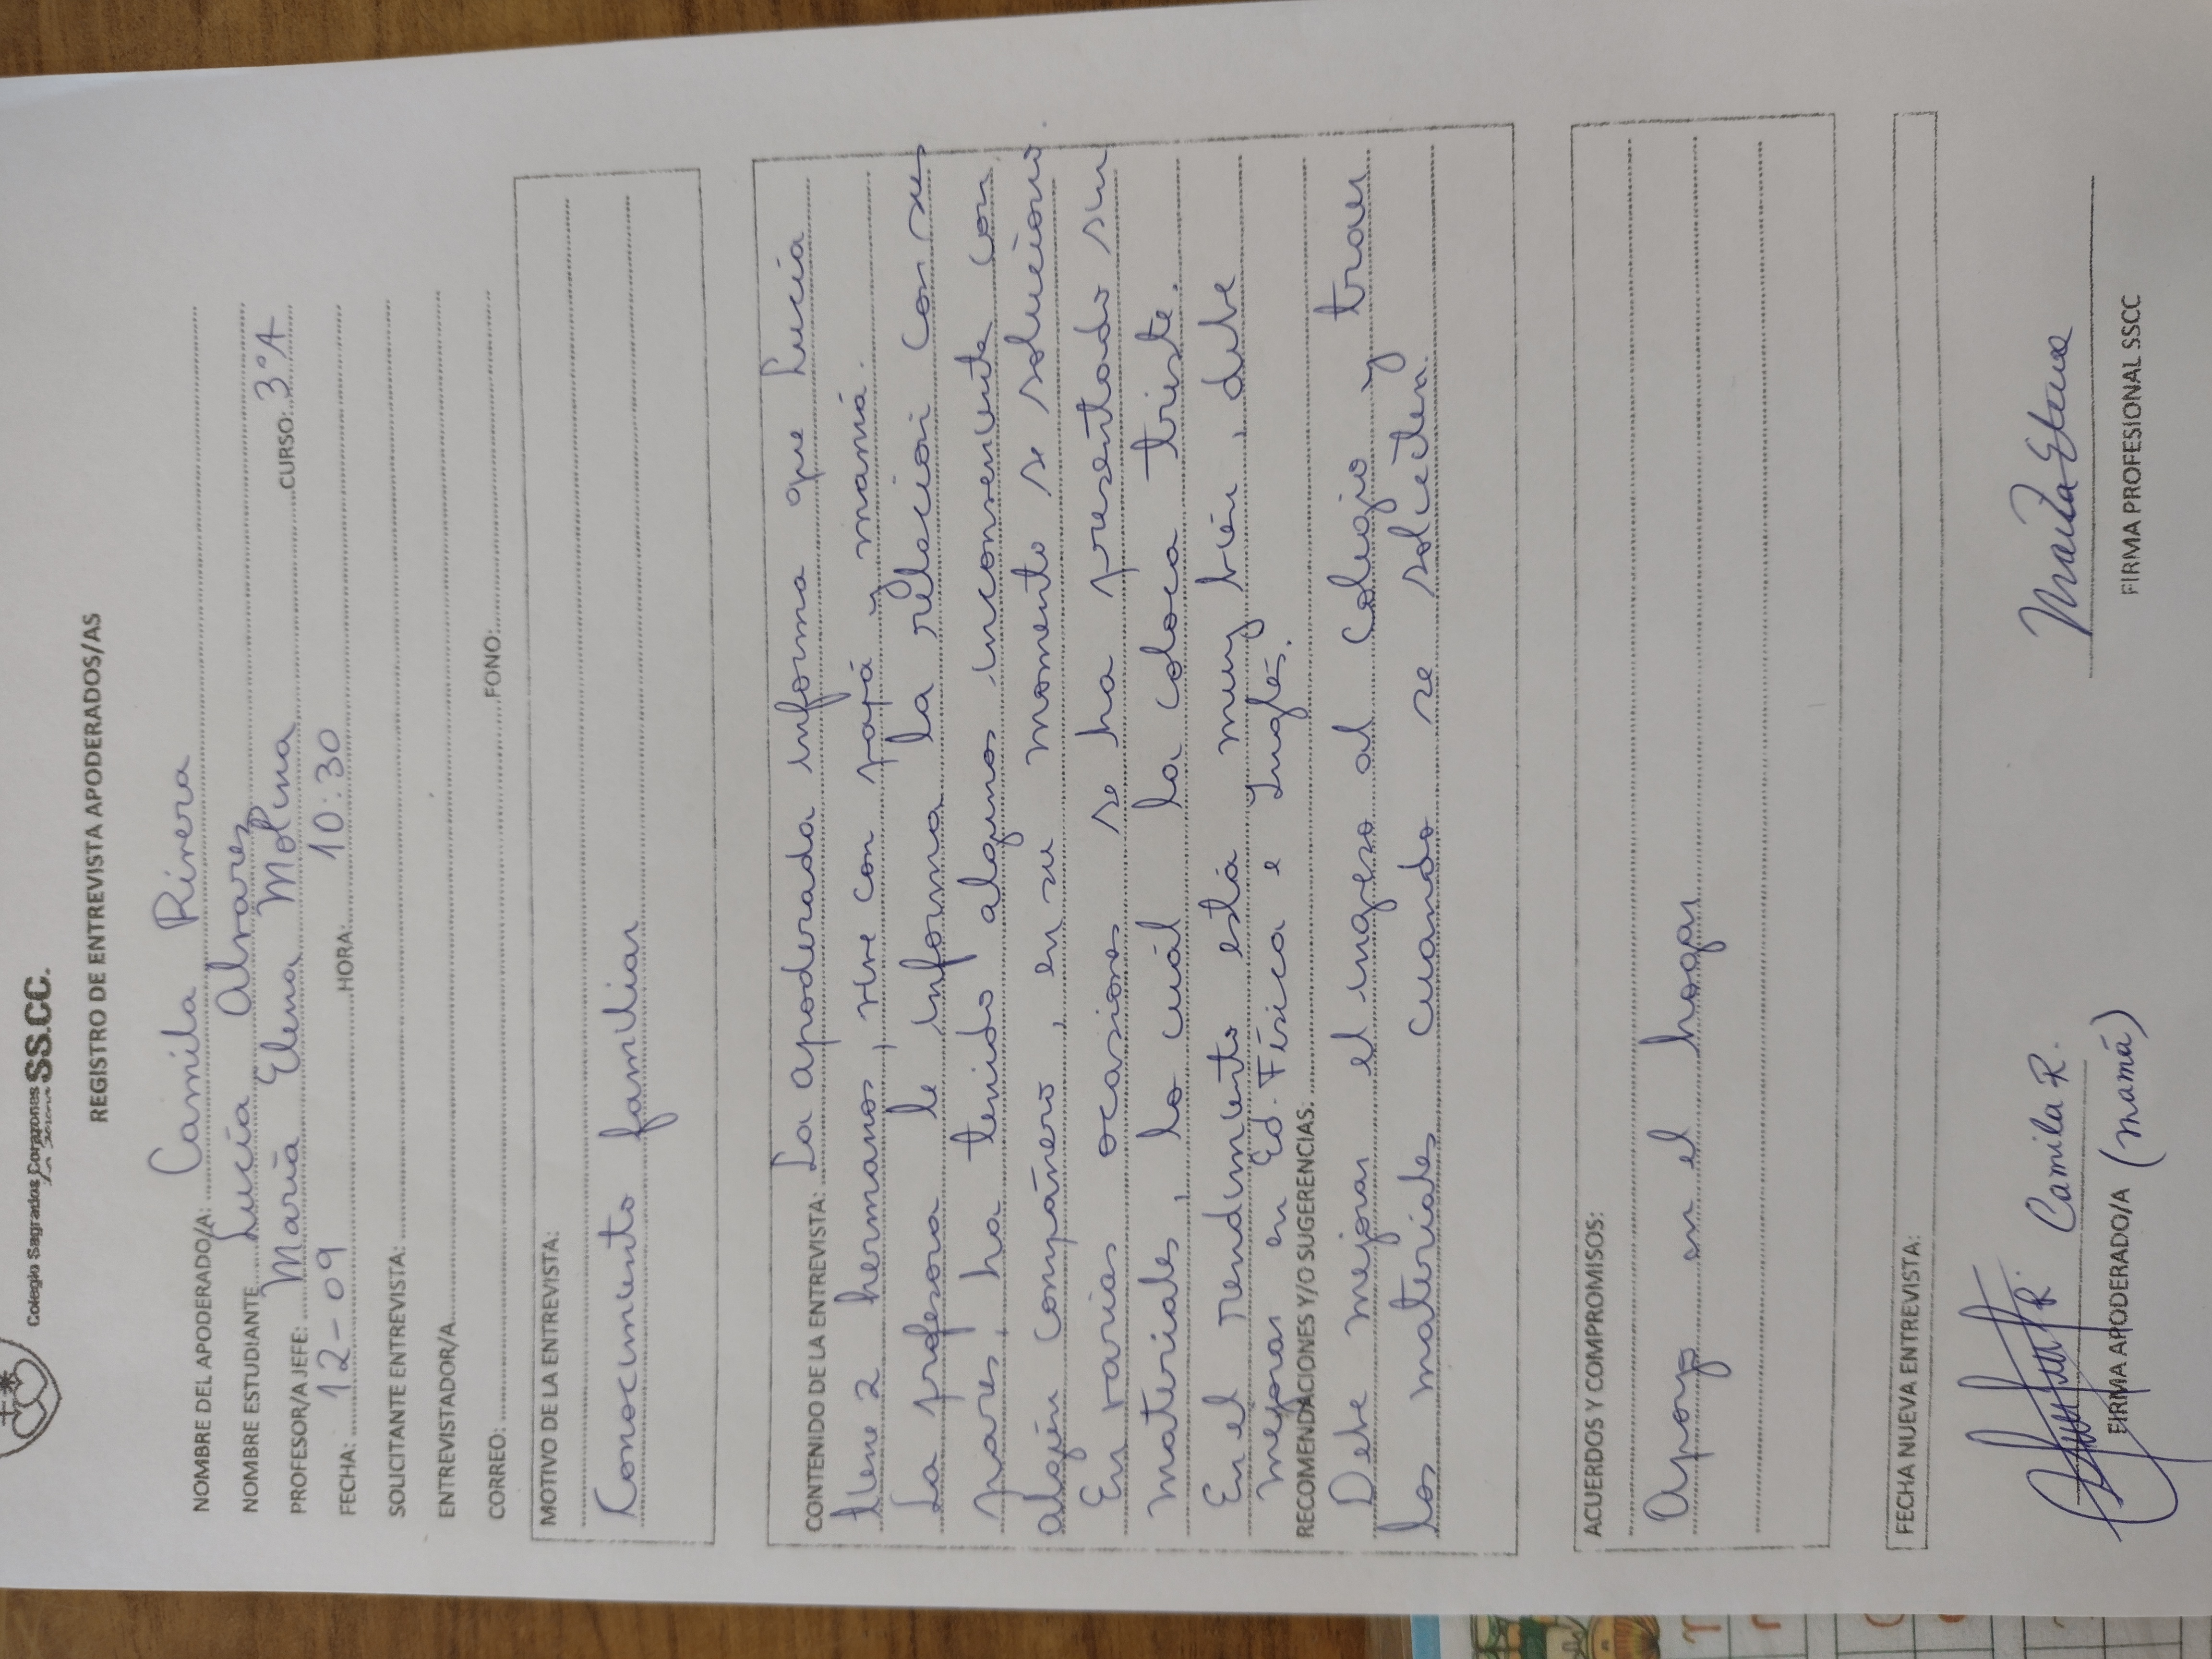 Colegio Sagrados Corazones SS.CC.
REGISTRO DE ENTREVISTA APODERADOS/AS
NOMBRE DEL APODERADO/A: Camila Rivera
NOMBRE ESTUDIANTE Lucía Alvarez
PROFESOR/A JEFE: María Elena Molina CURSO: 3°A
FECHA: 12-09 HORA: 10:30
SOLICITANTE ENTREVISTA:
ENTREVISTADOR/A
CORREO: FONO:
MOTIVO DE LA ENTREVISTA:
Conocimiento familiar
CONTENIDO DE LA ENTREVISTA: La apoderada informa que Lucía
tiene 2 hermanos, vive con papá y mamá.
La profesora le informa la relación con sus
pares, ha tenido algunos inconveniente con
algún compañero, en su momento se soluciono
En varias ocasiones se ha presentado sin
materiales, lo cuál la coloca triste.
En el rendimiento está muy bien, debe
mejorar en Ed. Física e Inglés.
RECOMENDACIONES Y/O SUGERENCIAS:
Debe mejorar el ingreso al colegio y traer
los materiales cuando se soliciten.
ACUERDOS Y COMPROMISOS:
Apoyo en el hogar
FECHA NUEVA ENTREVISTA:
Camila R.
FIRMA APODERADO/A (mamá)
María Elena
FIRMA PROFESIONAL SSCC